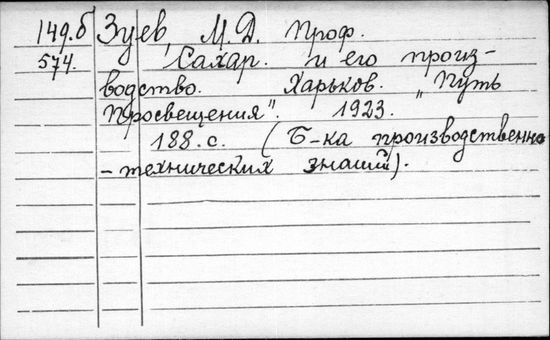 149.б Зуев М.Д. Проф.
574. Сахар. и его произ-
водство. Харьков. „Путь
Просвещения". 1923.
188.с. (Б-ка производственно
-технических знаний).